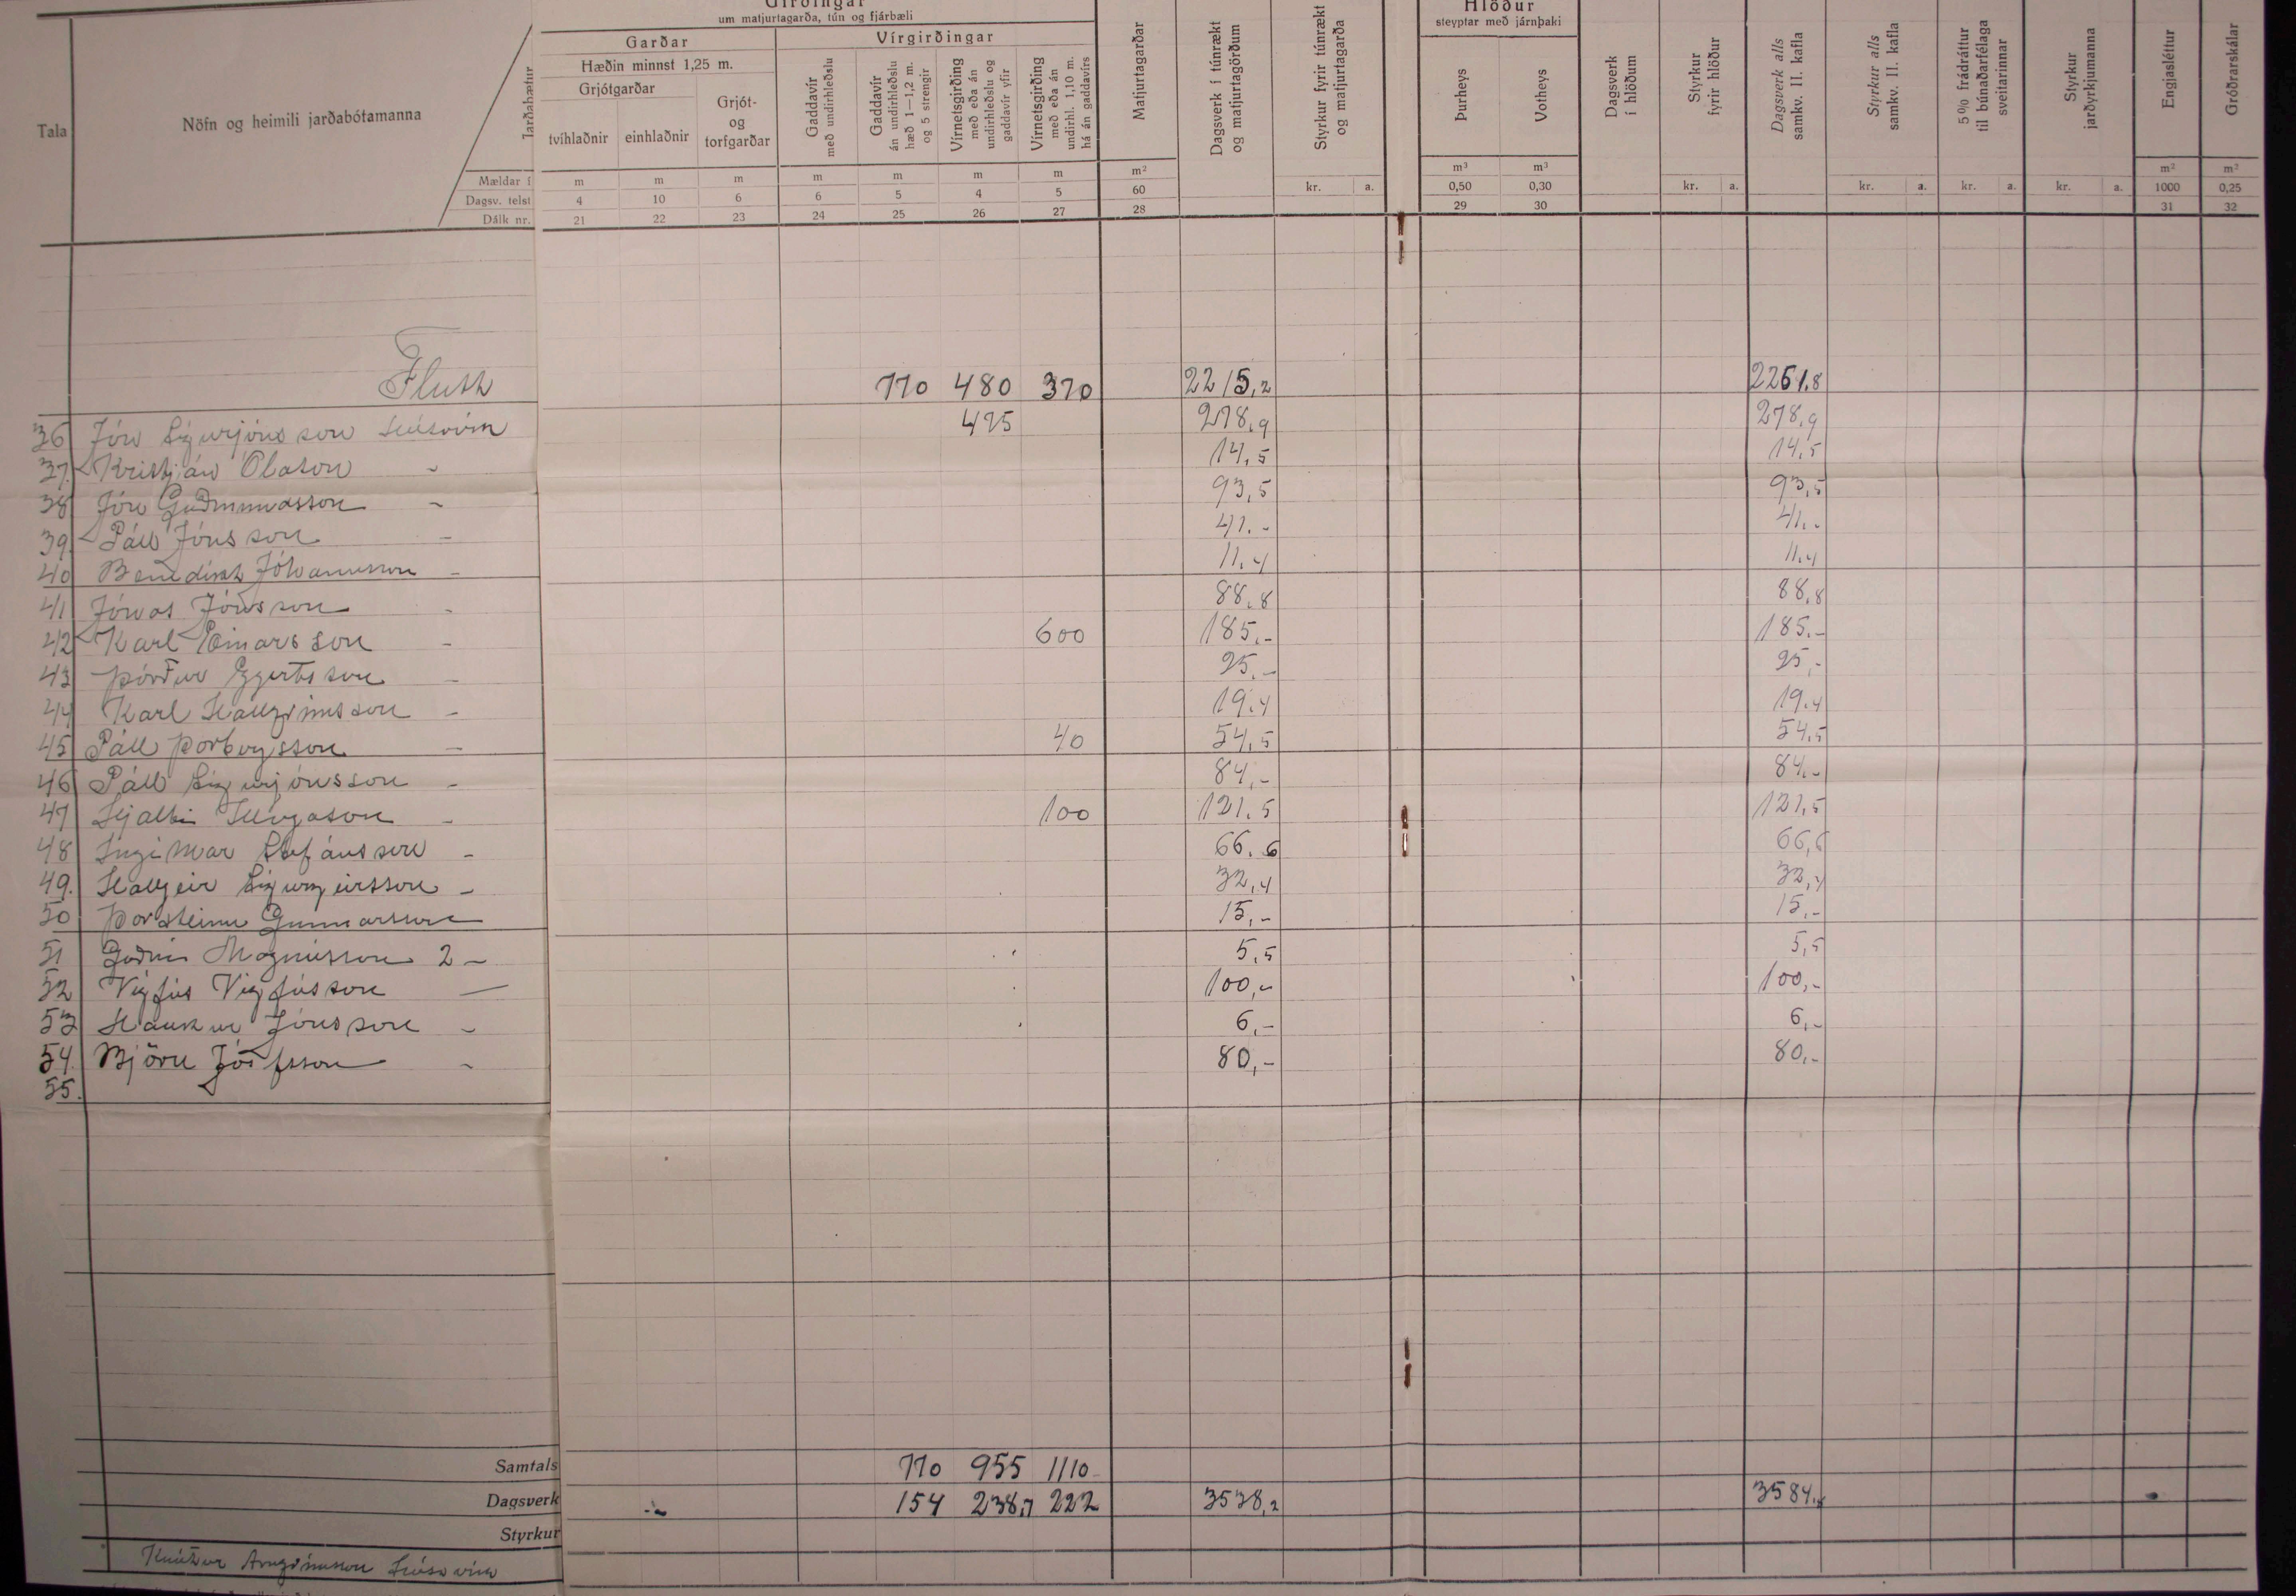 Girðingar
um matjurtagarða, tún og fjárbæli
Hlöður
steyptar með járnþaki
Tala
Nöfn og heimili jarðabótamanna
Jarðabætur
Mældar í
Dagsv. telst
Dálk nr.
Garðar
Hæðin minnst 1,25 m.
Grjótgarðar
tvíhlaðnir
einhlaðnir
Grjót-
og
torfgarðar
Vírgirðingar
Gaddavír
með undirhleðslu
Gaddavír
án undirhleðslu
hæð 1—1,2 m.
og 5 strengir
Vírnetsgirðing
með eða án
undirhleðslu og
gaddavír yfir
Vírnetsgirðing
með eða án
undirhl. 1,10 m.
há án gaddavírs
Matjurtagarðar
Dagsverk í túnrækt
og matjurtagörðum
Styrkur fyrir túnrækt
og matjurtagarða
Þurheys
Votheys
Dagsverk
í hlöðum
Styrkur
fyrir hlöður
Dagsverk alls
samkv. II. kafla
Styrkur alls
samkv. II. kafla
5% frádráttur
til búnaðarfélaga
sveitarinnar
Styrkur
jarðyrkjumanna
Engjasléttur
Gróðrarskálar
m m m m m m m m² kr. a. m³ m³ kr. a. kr. a. kr. a. kr. a. m² m²
4 10 6 6 5 4 5 60 0,50 0,30 1000 0,25
21 22 23 24 25 26 27 28 29 30 31 32
Flutt 770 480 370 2215,2 2261,8
36 Jón Sigurjónsson Húsavík 475 278,9 278,9
37. Kristján Ólason - 14,5 14,5
38 Jón Guðmundsson - 93,5 93,5
39. Páll Jónsson - 41.- 41.-
40 Benedikt Jóhannsson - 11,4 11,4
41 Jónas Jónsson - 88,8 88,8
42 Karl Einarsson - 600 185.- 185.-
43 Þórður Eggertsson - 25.- 25.-
44 Karl Hallgrímsson - 19,4 19,4
45 Páll Þorbergsson - 40 54,5 54,5
46 Páll Sigurjónsson - 84,- 84.-
47 Hjalti Illugason - 100 121,5 121,5
48 Ingimar Stefánsson - 66,6 66,6
49. Hallgeir Sigurgeirsson - 32,4 32,4
50 Þorsteinn Gunnarsson 15,- 15,-
51 Guðni Magnússon 2 - 5,5 5,5
52 Vigfús Vigfússon — 100,- 100,-
53 Haukur Jónsson - 6,- 6,-
54. Björn Jósefsson - 80,- 80,-
55.
Samtals 770 955 1110
Dagsverk 154 238,7 222 3538,2 3584,8
Styrkur
Knútur Arngrímsson Húsavík